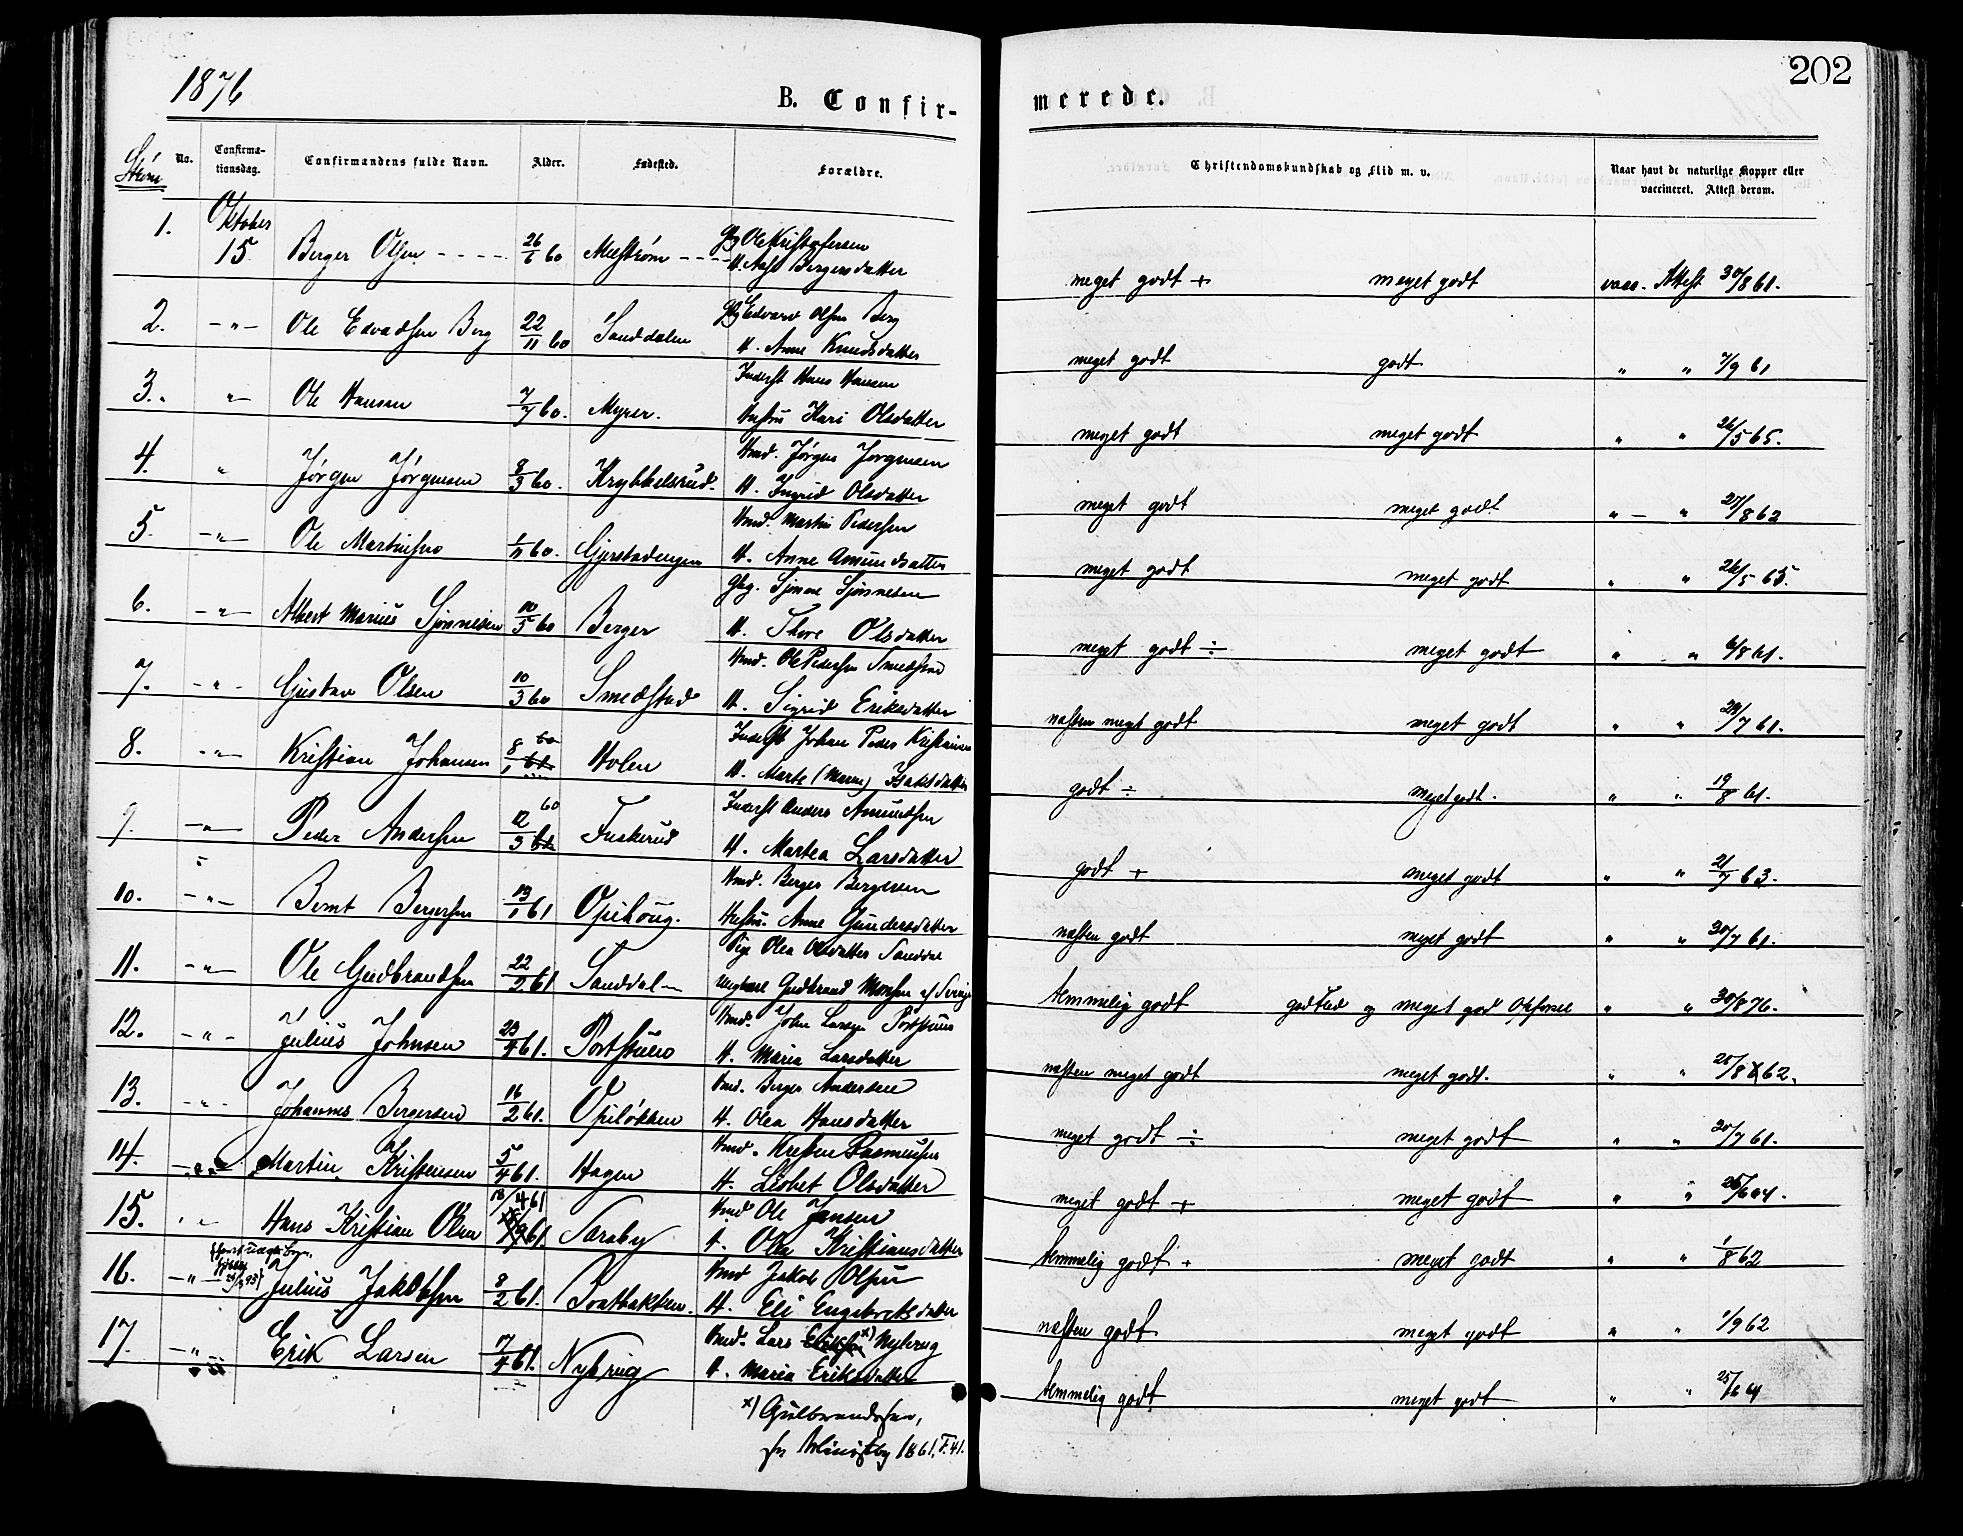 1876
202
B. Confir-
merede.
No.
Confirma-
tionsdag.
Confirmandens fulde Navn.
Alder.
Fødested.
Forældre.
Christendomskundskab og Flid m. v.
Naar havt de naturlige Kopper eller
vaccineret. Attest derom.
1. Oktober 15. Berger Olsen 26/6 60 Melstrøm
Gbg Ole Kristofersen
H. Bergersdatter
meget godt + meget godt vacc. Attest 30/8 61.
2. -"- Ole Edvardsen Berg 22/11 60 Sanddalen
Gbg Edvard Olsen Berg
H. Anne Knudsdatter
meget godt godt " " 7/9 61
3. " Ole Hansen 7/7 60. Myrer.
Inderst Hans Hansen
Hustru Kari Olsdatter
meget godt meget godt " " 26/5 65.
4. " Jørgen Jørgensen 8/3 60. Krykkelsrud
Hmd. Jørgen Jørgensen
H. Ingrid Olsdatter
meget godt meget godt " - " 27/8 62
5. -"- Ole Martinsen 1/11 60. Gjerstadengen
Hmd. Martin Pedersen
H. Anne Amundsatter
meget godt meget godt " " 26/5 65.
6. -"- Albert Marius Sjønnesen 10/5 60 Berger
Gbg. Sjønne Sjønnesen
H. Thore Olsdatter
meget godt ÷ meget godt " " 6/8 61.
7. -"- Gustav Olsen 10/3 60 Smedstad
Hmd. Ole Pedersen Smedstad
H. Sigrid Eriksdatter
næsten meget godt meget godt " " 29/7 61.
8. -"- Kristian Johansen 8/1 60 61 Holen
Inderst Johan Peder Kristiansen
H. Marte (Maren) Isaksdatter
godt ÷ meget godt. " " 19/8 61.
9. -"- Peder Andersen 12/3 60 61 Fuskerud
Inderst Anders Amundsen
H. Martea Larsdatter
godt + meget godt " " 21/7 63.
10. -"- Bernt Bergersen 13/1 61 Opihoug.
Hmd. Berger Bergersen
Hustru. Anne Gundersdatter
næsten godt meget godt " " 30/7 61.
11. -"- Ole Gudbrandsen 22/2 61 Sanddalen
Pige Olea Olsdatter Sanddal
Ungkarl Gudbrand Monsen af Sverige
temmelig godt god Flid og meget god Opførsel " " 30/8 76.
12. -"- Julius Johnsen 23/4 61. Portstuen
Hmd. John Larsen Portstuen
H. Maria Larsdatter
næsten meget godt meget godt. " " 25/8 62.
13. -"- Johannes Bergersen 16/2 61. Opiløkken
Hmd. Berger Andersen
H. Olea Hansdatter
meget godt ÷ meget godt " " 30/7 61.
14. -"- Martin Kristensen 5/4 61. Hagen
Hmd. Kresten Rasmussen
H. Lisbet Olsdatter
meget godt + meget godt " " 25/6 64.
15. -"- Hans Kristian Olsen 18/4 61 61. Taraby
Hmd Ole Jensen
H. Olea Kristiansdatter
temmelig godt + meget godt " " 1/8 62
16. -"- Julius Jakobsen 8/2 61.
Hmd Jakob Olsen
H. Eli Engebretsdatter
næsten godt meget godt " " 1/9 62
17. -"- Erik Larsen 7/4 61. Nybrug
Hmd. Lars x) Nybrug
H. Maria Eriksdatter
temmelig godt meget godt " " 25/6 64
x) Gulbrandsen,
1861, F. 41.